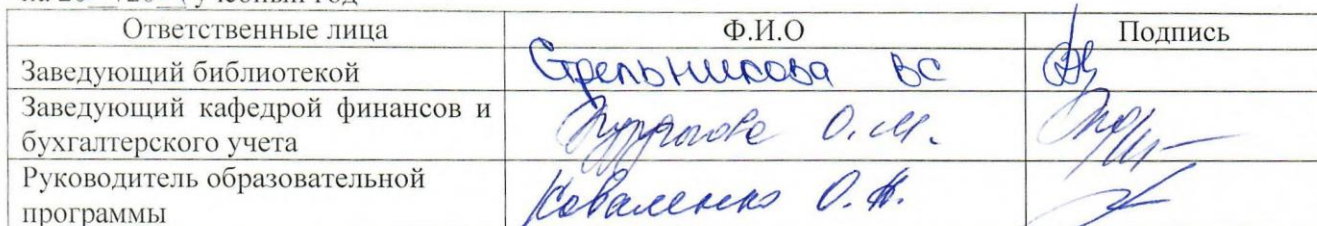 на 20__/20__ учебный год
Ответственные лица Ф.И.О Подпись
Заведующий библиотекой Стрельникова ВС
Заведующий кафедрой финансов и
бухгалтерского учета О.М.
Руководитель образовательной
программы Коваленко О.Н.